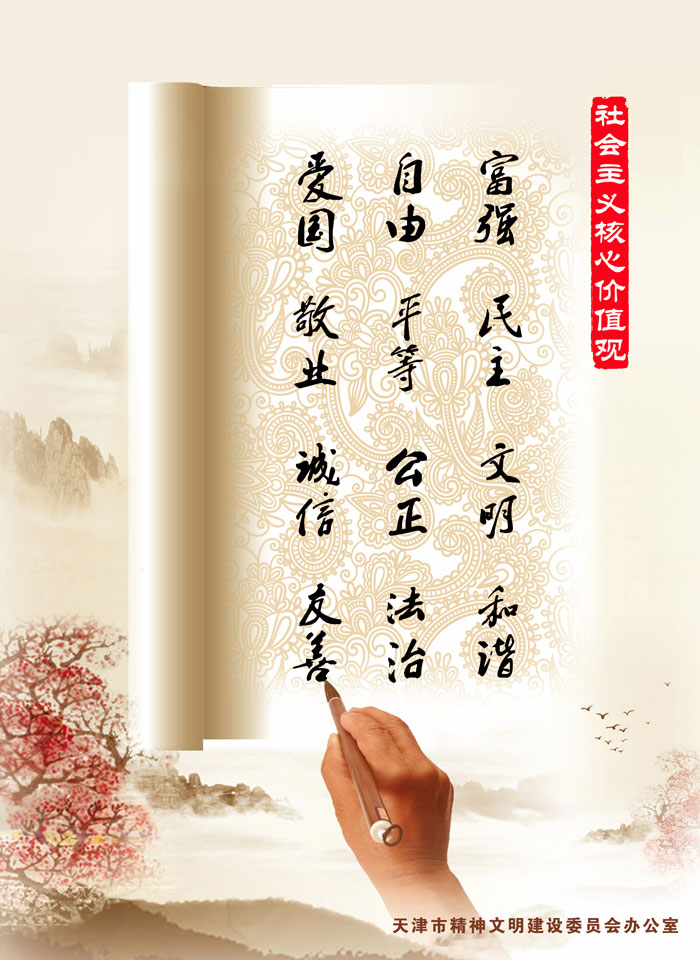 社会主义核心价值观
富强 民主 文明 和谐
自由 平等 公正 法治
爱国 敬业 诚信 友善
天津市精神文明建设委员会办公室